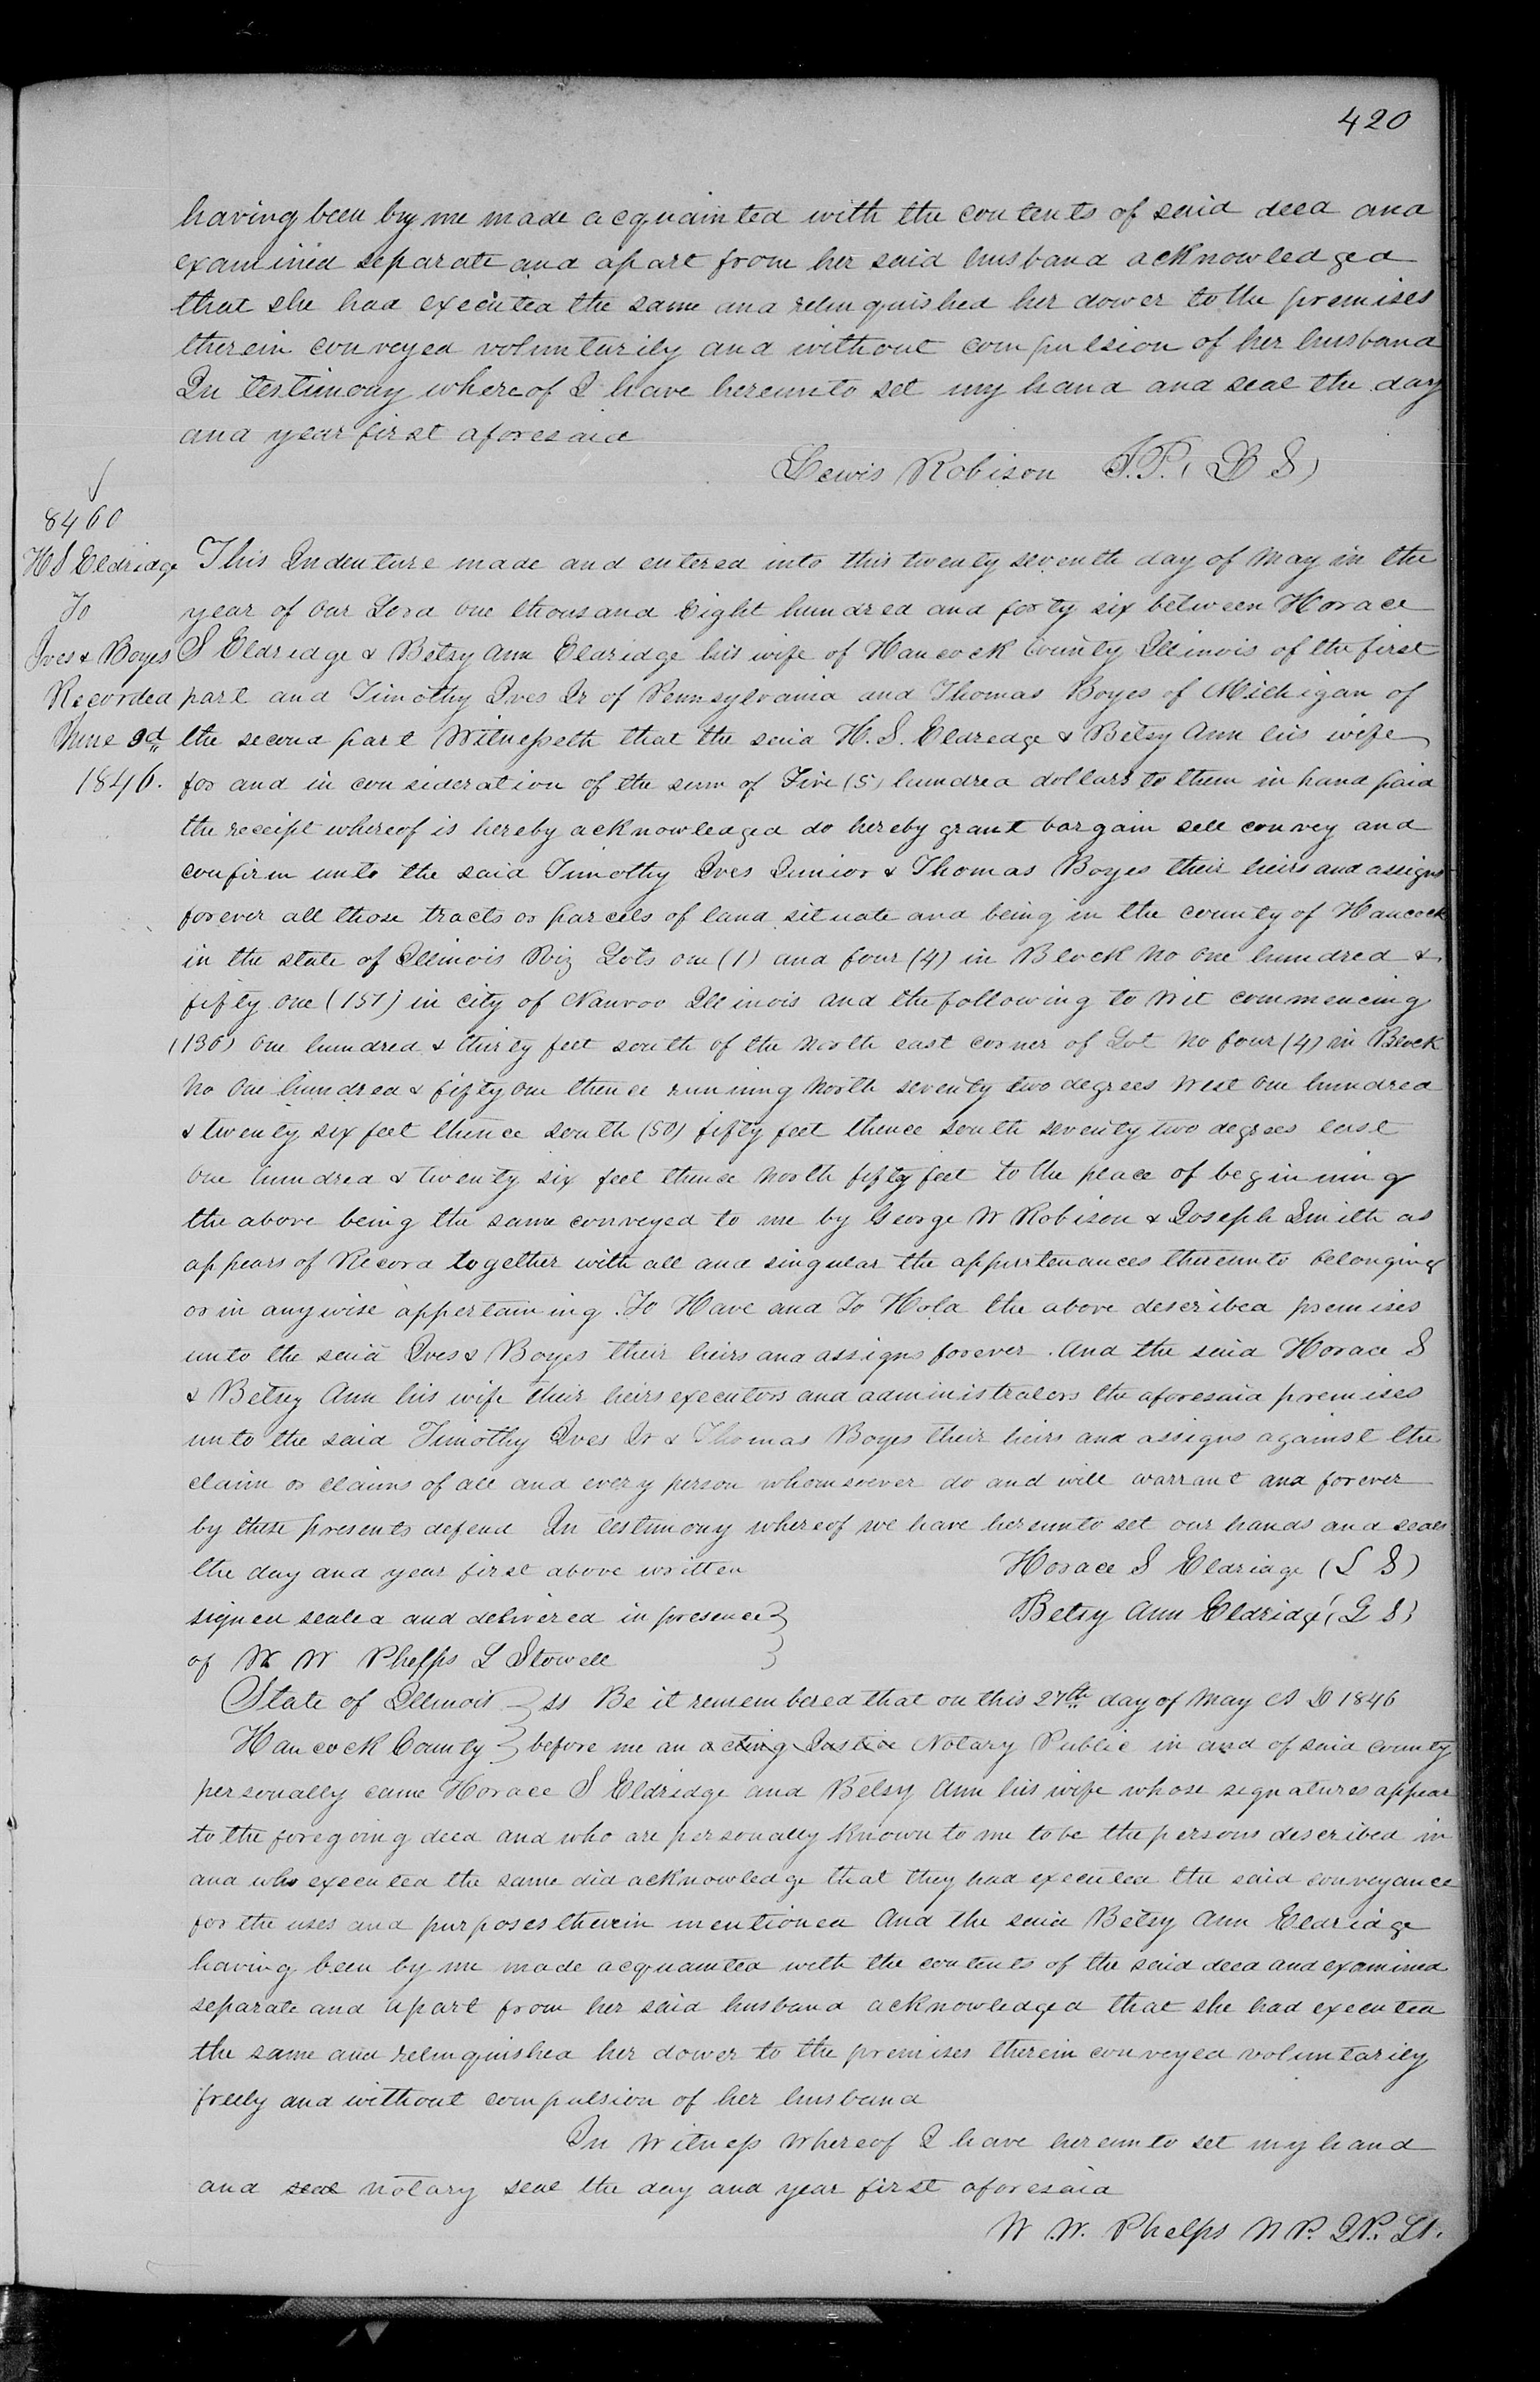 420
having been by me made acquainted with the contents of said deed and
examined separate and apart from her said husband acknowledged
that she had executed the same and relinquished her dower to the premises
therein conveyed voluntarily and without compulsion of her husband
In testimony whereof I have hereunto set my hand and seal the day
and year first aforesaid
Lewis Robison J.P. (L S)
8460
H S Eldridge
To
Ives & Boyes
Recorded
June 3d
1846.
This Indenture made and entered into this twenty seventh day of May in the
year of our Lord one thousand Eight hundred and forty six between Horace
S Eldridge & Betsy Ann Eldridge his wife of Hancock County Illinois of the first
part and Timothy Ives Jr of Pennsylvania and Thomas Boyes of Michigan of
the second part Witnesseth that the said H. S. Eldredge & Betsy Ann his wife
for and in consideration of the sum of Five (5) hundred dollars to them in hand paid
the receipt whereof is hereby acknowledged do hereby grant bargain sell convey and
confirm unto the said Timothy Ives Junior & Thomas Boyes their heirs and assigns
forever all those tracts or parcels of land situate and being in the county of Hancock
in the state of Illinois Viz Lots one (1) and four (4) in Block No one hundred &
fifty one (151) in city of Nauvoo Illinois and the following to wit commencing
(130) one hundred & thirty feet south of the North east corner of Lot No four (4) in Block
No one hundred & fifty one thence running North seventy two degrees West one hundred
& twenty six feet thence south (50) fifty feet thence South seventy two degrees east
one hundred & twenty six feet thence North fifty feet to the place of beginning
the above being the same conveyed to me by George W Robison & Joseph Smith as
appears of Record together with all and singular the appurtenances thereunto belonging
or in anywise appertaining. To Have and To Hold the above described premises
unto the said Ives & Boyes their heirs and assigns forever. And the said Horace S
& Betsey Ann his wife their heirs executors and administrators the aforesaid premises
unto the said Timothy Ives Jr & Thomas Boyes their heirs and assigns against the
claim or claims of all and every person whomsoever do and will warrant and forever
by these presents defend In testimony whereof we have hereunto set our hands and seals
the day and year first above written Horace S Eldridge (L S)
signed sealed and delivered in presence Betsy Ann Eldridge (L S)
of W W Phelps L Stowell
State of Illinois ss Be it remembered that on this 27th day of May A D 1846
Hancock County before me an acting Justice Notary Public in and of said county
personally came Horace S Eldridge and Betsy Ann his wife whose signatures appear
to the foregoing deed and who are personally known to me to be the persons described in
and who executed the same did acknowledge that they had executed the said conveyance
for the uses and purposes therein mentioned And the said Betsy Ann Eldridge
having been by me made acquainted with the contents of the said deed and examined
separate and apart from her said husband acknowledged that she had executed
the same and relinquished her dower to the premises therein conveyed voluntarily
freely and without compulsion of her husband
In Witness Whereof I have hereunto set my hand
and seal notary seal the day and year first aforesaid
W. W. Phelps N P.